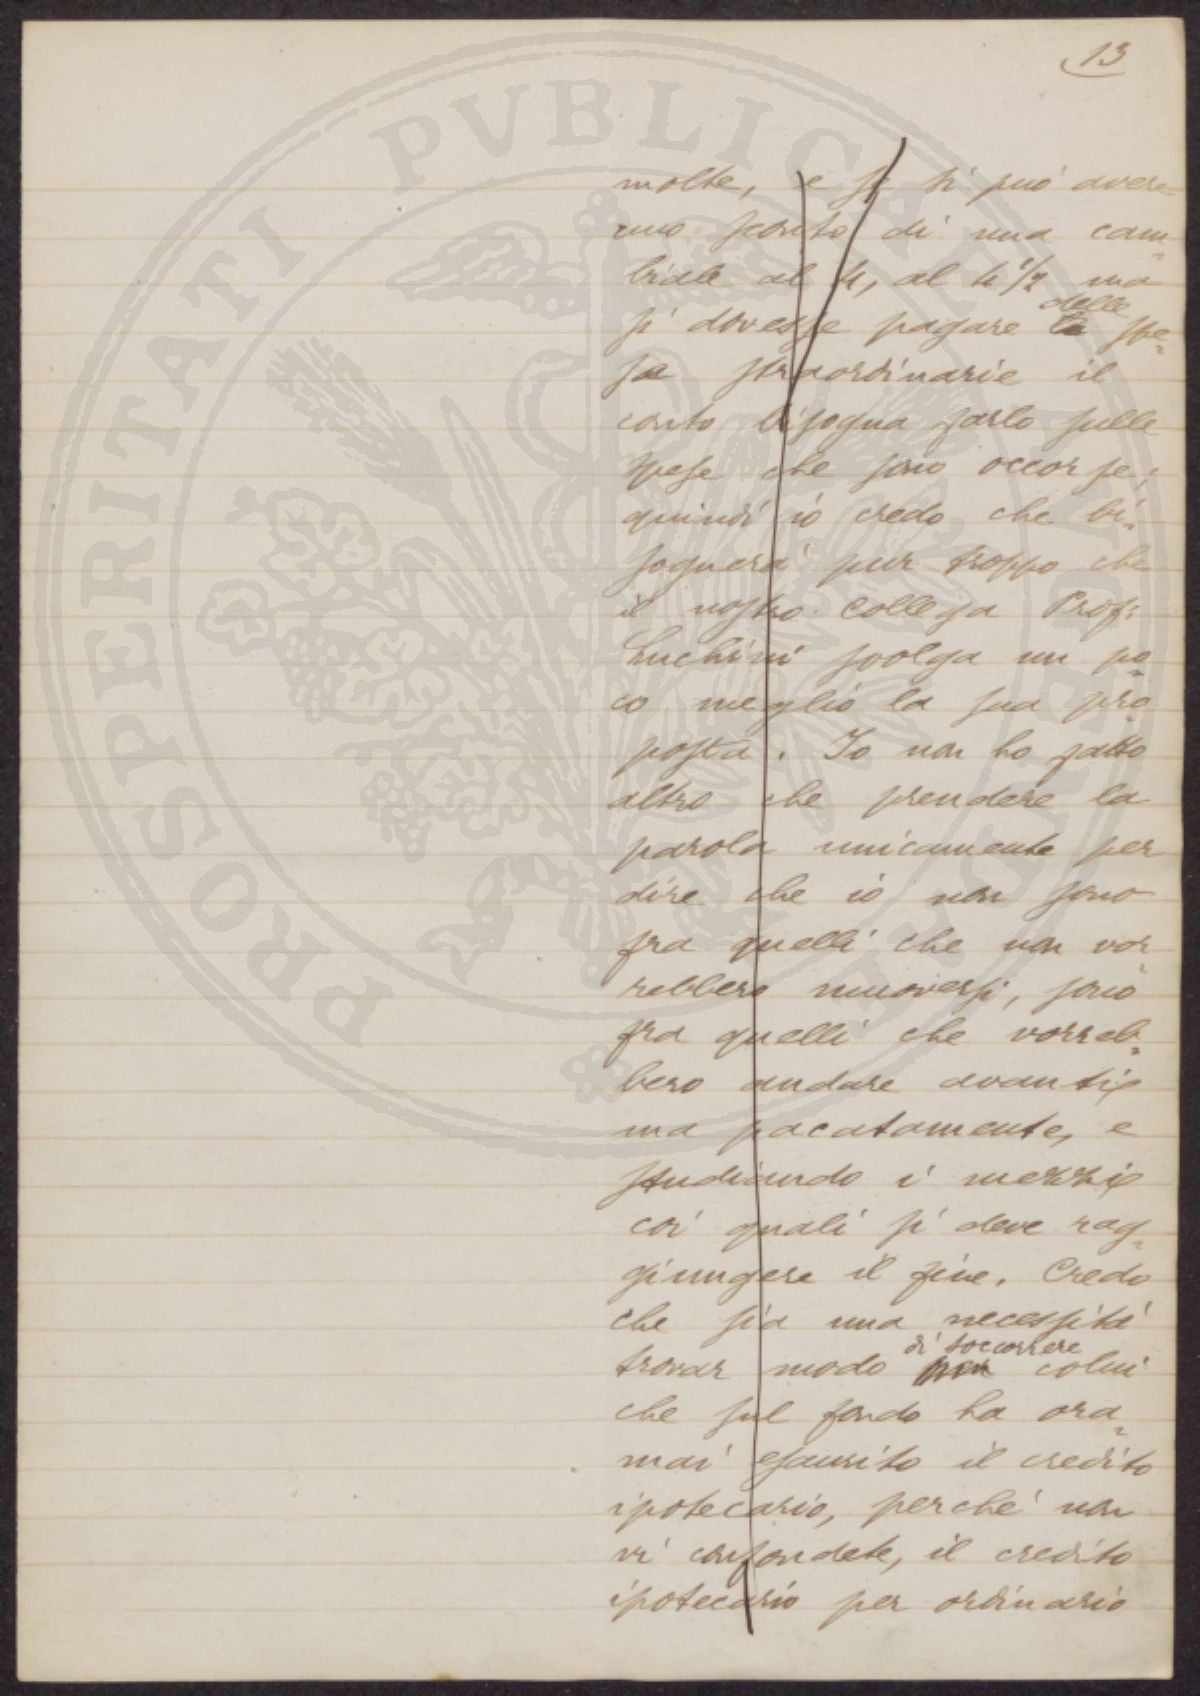 13
molte, e se si può avere
uno sconto di una cam=
biale al 4, al 4 1/2 ma
si dovesse pagare delle spe=
se straordinarie il
conto bisogna farlo sulle
spese che sono occorse;
quindi io credo che bi=
sognerà pur troppo che
il nostro collega Prof:
Luchini svolga un po=
co meglio la sua pro=
posta. Io non ho fatto
altro che prendere la
parola unicamente per
dire che io non sono
fra quelli che non vor=
rebbero muoversi, sono
fra quelli che vorreb=
bero andare avanti
ma pacatamente, e
studiando i mezzi
coi quali si deve rag=
giungere il fine. Credo
che sia una necessità
trovar modo di soccorrere colui
che sul fondo ha ora=
mai esaurito il credito
ipotecario, perché non
vi confondete, il credito
ipotecario per ordinario
PROSPERITATI PVBLICAE AVGENDAE